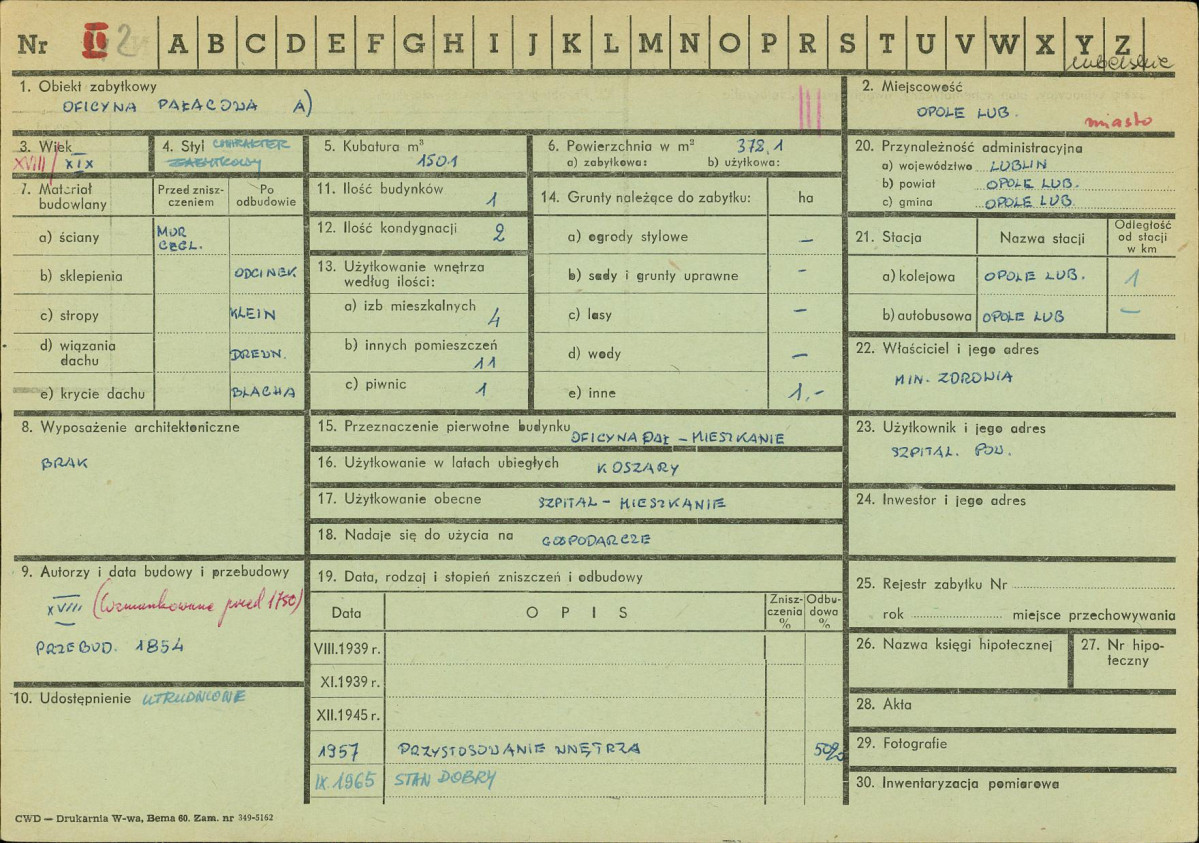 Nr II 2 A B C D E F G H I J K L M N O P R S T U V W X Y Z
lubelskie
1. Obiekt zabytkowy
OFICYNA PAŁACOWA A)
2. Miejscowość
OPOLE LUB.
miasto
3. Wiek
XVIII/XIX
4. Styl CHARAKTER
ZABYTKOWY
5. Kubatura m³
1501
6. Powierzchnia w m² 378,1
a) zabytkowa: b) użytkowa:
20. Przynależność administracyjna
a) województwo LUBLIN
b) powiat OPOLE LUB.
c) gmina OPOLE LUB.
7. Materiał budowlany
Przed zniszczeniem
Po odbudowie
a) ściany MUR CEGL.
b) sklepienia ODCINEK
c) stropy KLEIN
d) wiązania dachu DREWN.
e) krycie dachu BLACHA
11. Ilość budynków 1
12. Ilość kondygnacji 2
13. Użytkowanie wnętrza
według ilości:
a) izb mieszkalnych 4
b) innych pomieszczeń 11
c) piwnic 1
14. Grunty należące do zabytku: ha
a) ogrody stylowe –
b) sady i grunty uprawne –
c) lasy –
d) wody –
e) inne 1,-
21. Stacja Nazwa stacji Odległość od stacji w km
a) kolejowa OPOLE LUB. 1
b) autobusowa OPOLE LUB –
22. Właściciel i jego adres
MIN. ZDROWIA
8. Wyposażenie architektoniczne
BRAK
15. Przeznaczenie pierwotne budynku OFICYNA PAŁ – MIESZKANIE
16. Użytkowanie w latach ubiegłych KOSZARY
17. Użytkowanie obecne SZPITAL – MIESZKANIE
18. Nadaje się do użycia na GOSPODARCZE
23. Użytkownik i jego adres
SZPITAL. POW.
24. Inwestor i jego adres
9. Autorzy i data budowy i przebudowy
XVIII (Wzmiankowana przed 1750)
PRZEBUD. 1854
10. Udostępnienie UTRUDNIONE
19. Data, rodzaj i stopień zniszczeń i odbudowy
Data OPIS Zniszczenia % Odbudowa %
VIII.1939 r.
XI.1939 r.
XII.1945 r.
1957 PRZYSTOSOWANIE WNĘTRZA 50%
IX.1965 STAN DOBRY
25. Rejestr zabytku Nr
rok miejsce przechowywania
26. Nazwa księgi hipotecznej
27. Nr hipoteczny
28. Akta
29. Fotografie
30. Inwentaryzacja pomiarowa
CWD — Drukarnia W-wa, Bema 60. Zam. nr 349-5162